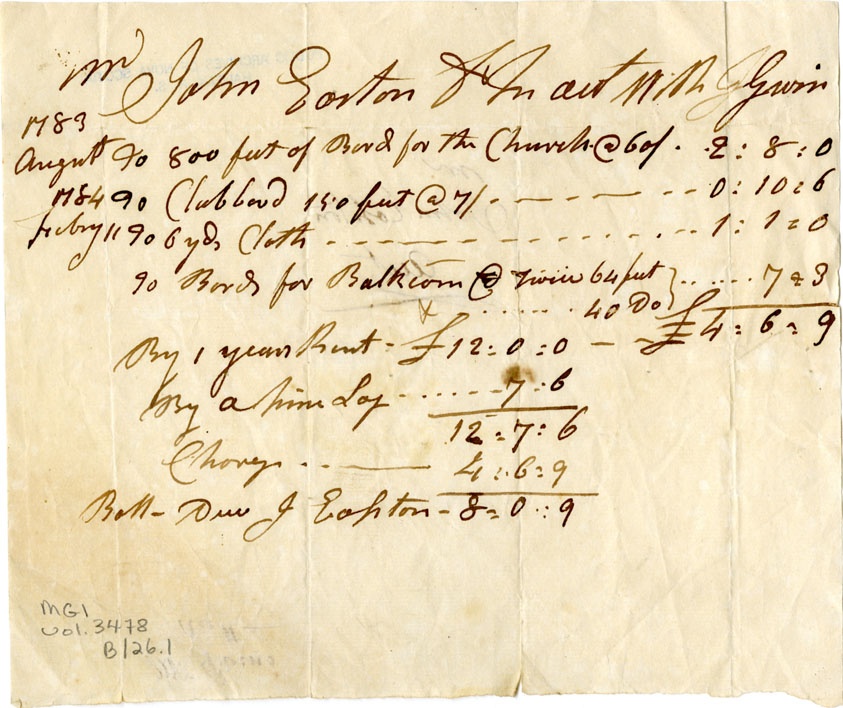 Mr John Easton Dr In act With J Gwin
1783
August 90 800 feet of Bord for the Church @ 60/. 2:8:0
1784 90 Clabbord 150 feet @ 7/ 0:10:6
Febry 11 90 6 yds Cloth 1:1:0
90 Bords for Balkcom @ 64 feet 7:3
40 Do £4:6:9
By 1 year Rent £12:0:0
By a Log 7:6
12:7:6
Charge 4:6:9
Ball Due J Easston 8:0:9
MG1
vol. 3478
B/26.1